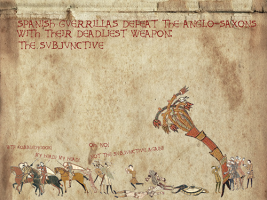 SPANISH GUERRILLAS DEFEAT THE ANGLO-SAXONS
WITH THEIR DEADLIEST WEAPON:
THE SUBJUNCTIVE
MY HORSE! MY HORSE!
OH NO!
NOT THE SUBJUNCTIVE AGAIN!